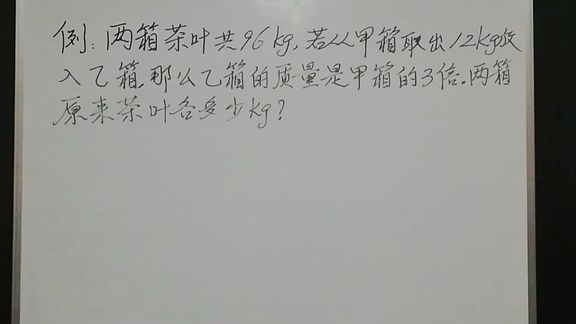 例:两箱茶叶共96kg,若从甲箱取出12kg放
入乙箱,那么乙箱的质量是甲箱的3倍.两箱
原来茶叶各多少kg?